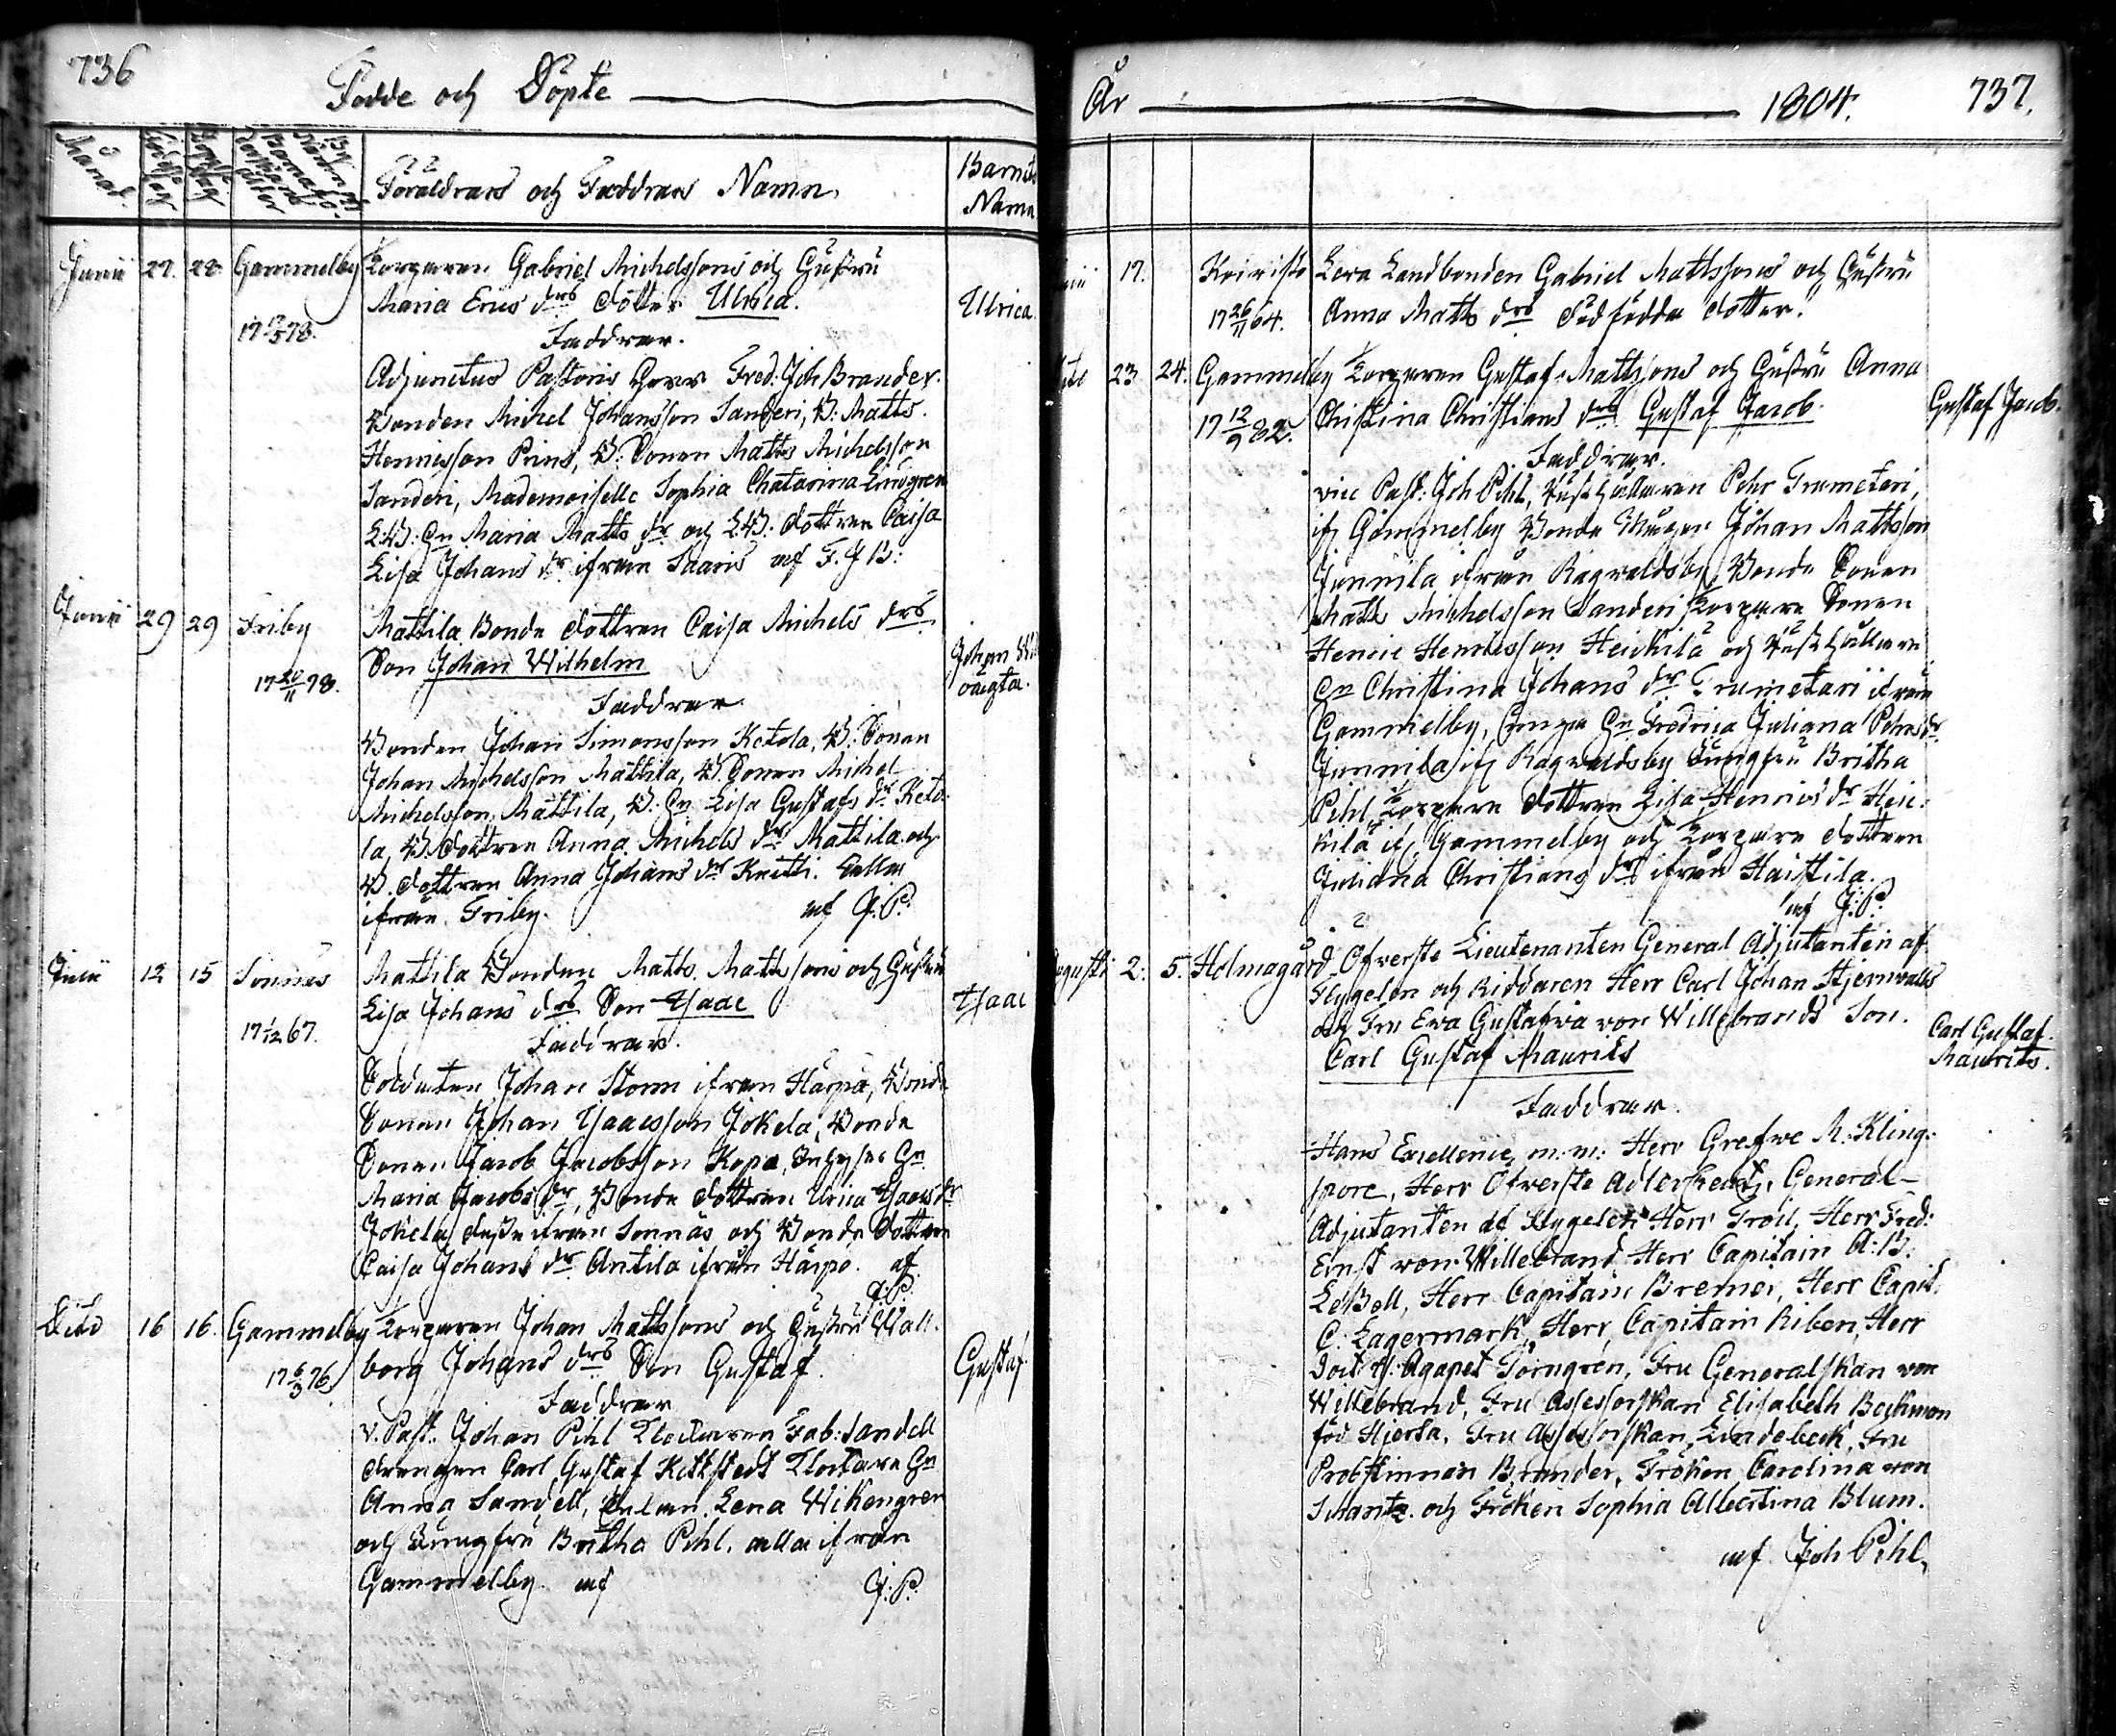 736
Födde och Döpte
Månad.
Födelse dag
Döpelse dag
Föräldrars och Faddrars Namn.
Barnets
Namn
Junii 27. 28. Gammelby Torparen Gabriel Michelssons och Hustru
Maria Erics drs dotter Ulrica.
Ulrica.
17 5 78.
Faddrar.
Adjunctus Pastoris Herr Fred: Joh Brander.
Bonden Michel Johansson Sanderi, B: Matts
Henricsson Prins, B: Sonen Matts Michelsson
Sanderi, Mademoiselle Sophia Chatarina
B: Hu Maria Matts dr och B: dottren Caisa
Lisa Johans dr ifrån Saaris af F. J B:
Junii 29 29 Friby
Mattila Bonde dottren Caisa Michels drs
Son Johan Wilhelm
Johan Wil
oägta.
17 20/11 78.
Faddrar
Bonden Johan Simonsson Ketola, B: Sonen
Johan Michelsson Mattila, B. Sonen Michel
Michelsson Mattila, B: Hu Lisa Gustafs dr Keto-
la, B dottren Anna Michels dr Mattila och
B. dottren Anna Johans dr Knuti. alla
ifrån Friby. af J: P:
Julii 12 15 Sonnäs
Mattila Bonden Matts Mattssons och Hustru
Lisa Johans drs Son Isaac
Isaac
17 1/12 67.
Faddrar.
Soldaten Johan Storm ifrån Härpö, Bonde
Sonen Johan Isaacsson Jokela, Bonde
Sonen Jacob Jacobsson Kopa, Inhyses Hu
Maria Jacobs dr, Bonde dottren Ulrica Isaacs dr
Jokela desse ifrån Sonnäs och Bonde dottren
Caisa Johans dr Antila ifrån Härpö. af
J:P:
Dito 16 16. Gammelby Torparen Johan Mattssons och Hustru Wall-
borg Johans drs Son Gustaf.
Gustaf
17 6/3 76.
Faddrar
v. Past. Johan Pihl Klockaren Fab: Sandell
drengen Carl Gustaf Klockare Hu
Anna Sandell, Lena Wikengren
och Jungfru Britha Pihl. alla ifrån
Gammelby. af J: P.
År 1804. 737.
17. Koiviste Lora Landbonden Gabriel Mattssons och Hustru
17 26/11 64. Anna Matts drs dödfödda dotter.
23 24. Gammelby Torparen Gustaf Mattssons och Hustru Anna
17 12/9 82. Christina Christians drs Gustaf Jacob.
Gustaf Jacob.
Faddrar.
vice Past: Joh Pihl, Rusthållaren Pehr Trumetari,
if Gammelby Bonde Mågen Johan Mattsson
Junnila ifrån Ragwaldsby, Bonde Sonen
Matts Michelsson Sanderi Torpare Sonen
Henric Henricsson Heickilä och Rusthållare
Hu Christina Johans dr Trumetari ifrån
Gammelby, Hu Fredrica Juliana Pehrs dr
Junnila if Ragwaldsby Jungfru Britha
Pihl, Torpare dottren Lisa Henrics dr Heic-
kilä if Gammelby och Torpare dottren
Juliana Christians dr ifrån Haistila.
af J: P:
Augusti 2. 5. Holmagård Öfwerste Lieutenanten General Adjutanten af
Flygelen och Riddaren Herr Carl Johan Stjernvalls
och Fru Ewa Gustafwa von Willebrands Son.
Carl Gustaf Maurits
Carl Gustaf
Maurits.
Faddrar.
Hans Excellence, m. m: Herr Grefwe M: Kling-
spore, Herr Öfwerste Adlercreutz, General-
Adjutanten af Flygelen Herr Troil, Herr Fred:
Ernst von Willebrand Herr Capitain A: B:
LeBell, Herr Capitain Bremer, Herr Capit
C. Lagermark, Herr Capitain Riben, Herr
Doct. H: Agapet Törngren, Fru Generalskan von
Willebrand, Fru Assessorskan Elisabeth Beckman
föd Hjerta, Fru Assessorskan Lindebeck, Fru
Probstinnan Brander, Fröken Carolina von
Schantz. och Fröken Sophia Albertina Blum.
af Joh Pihl,